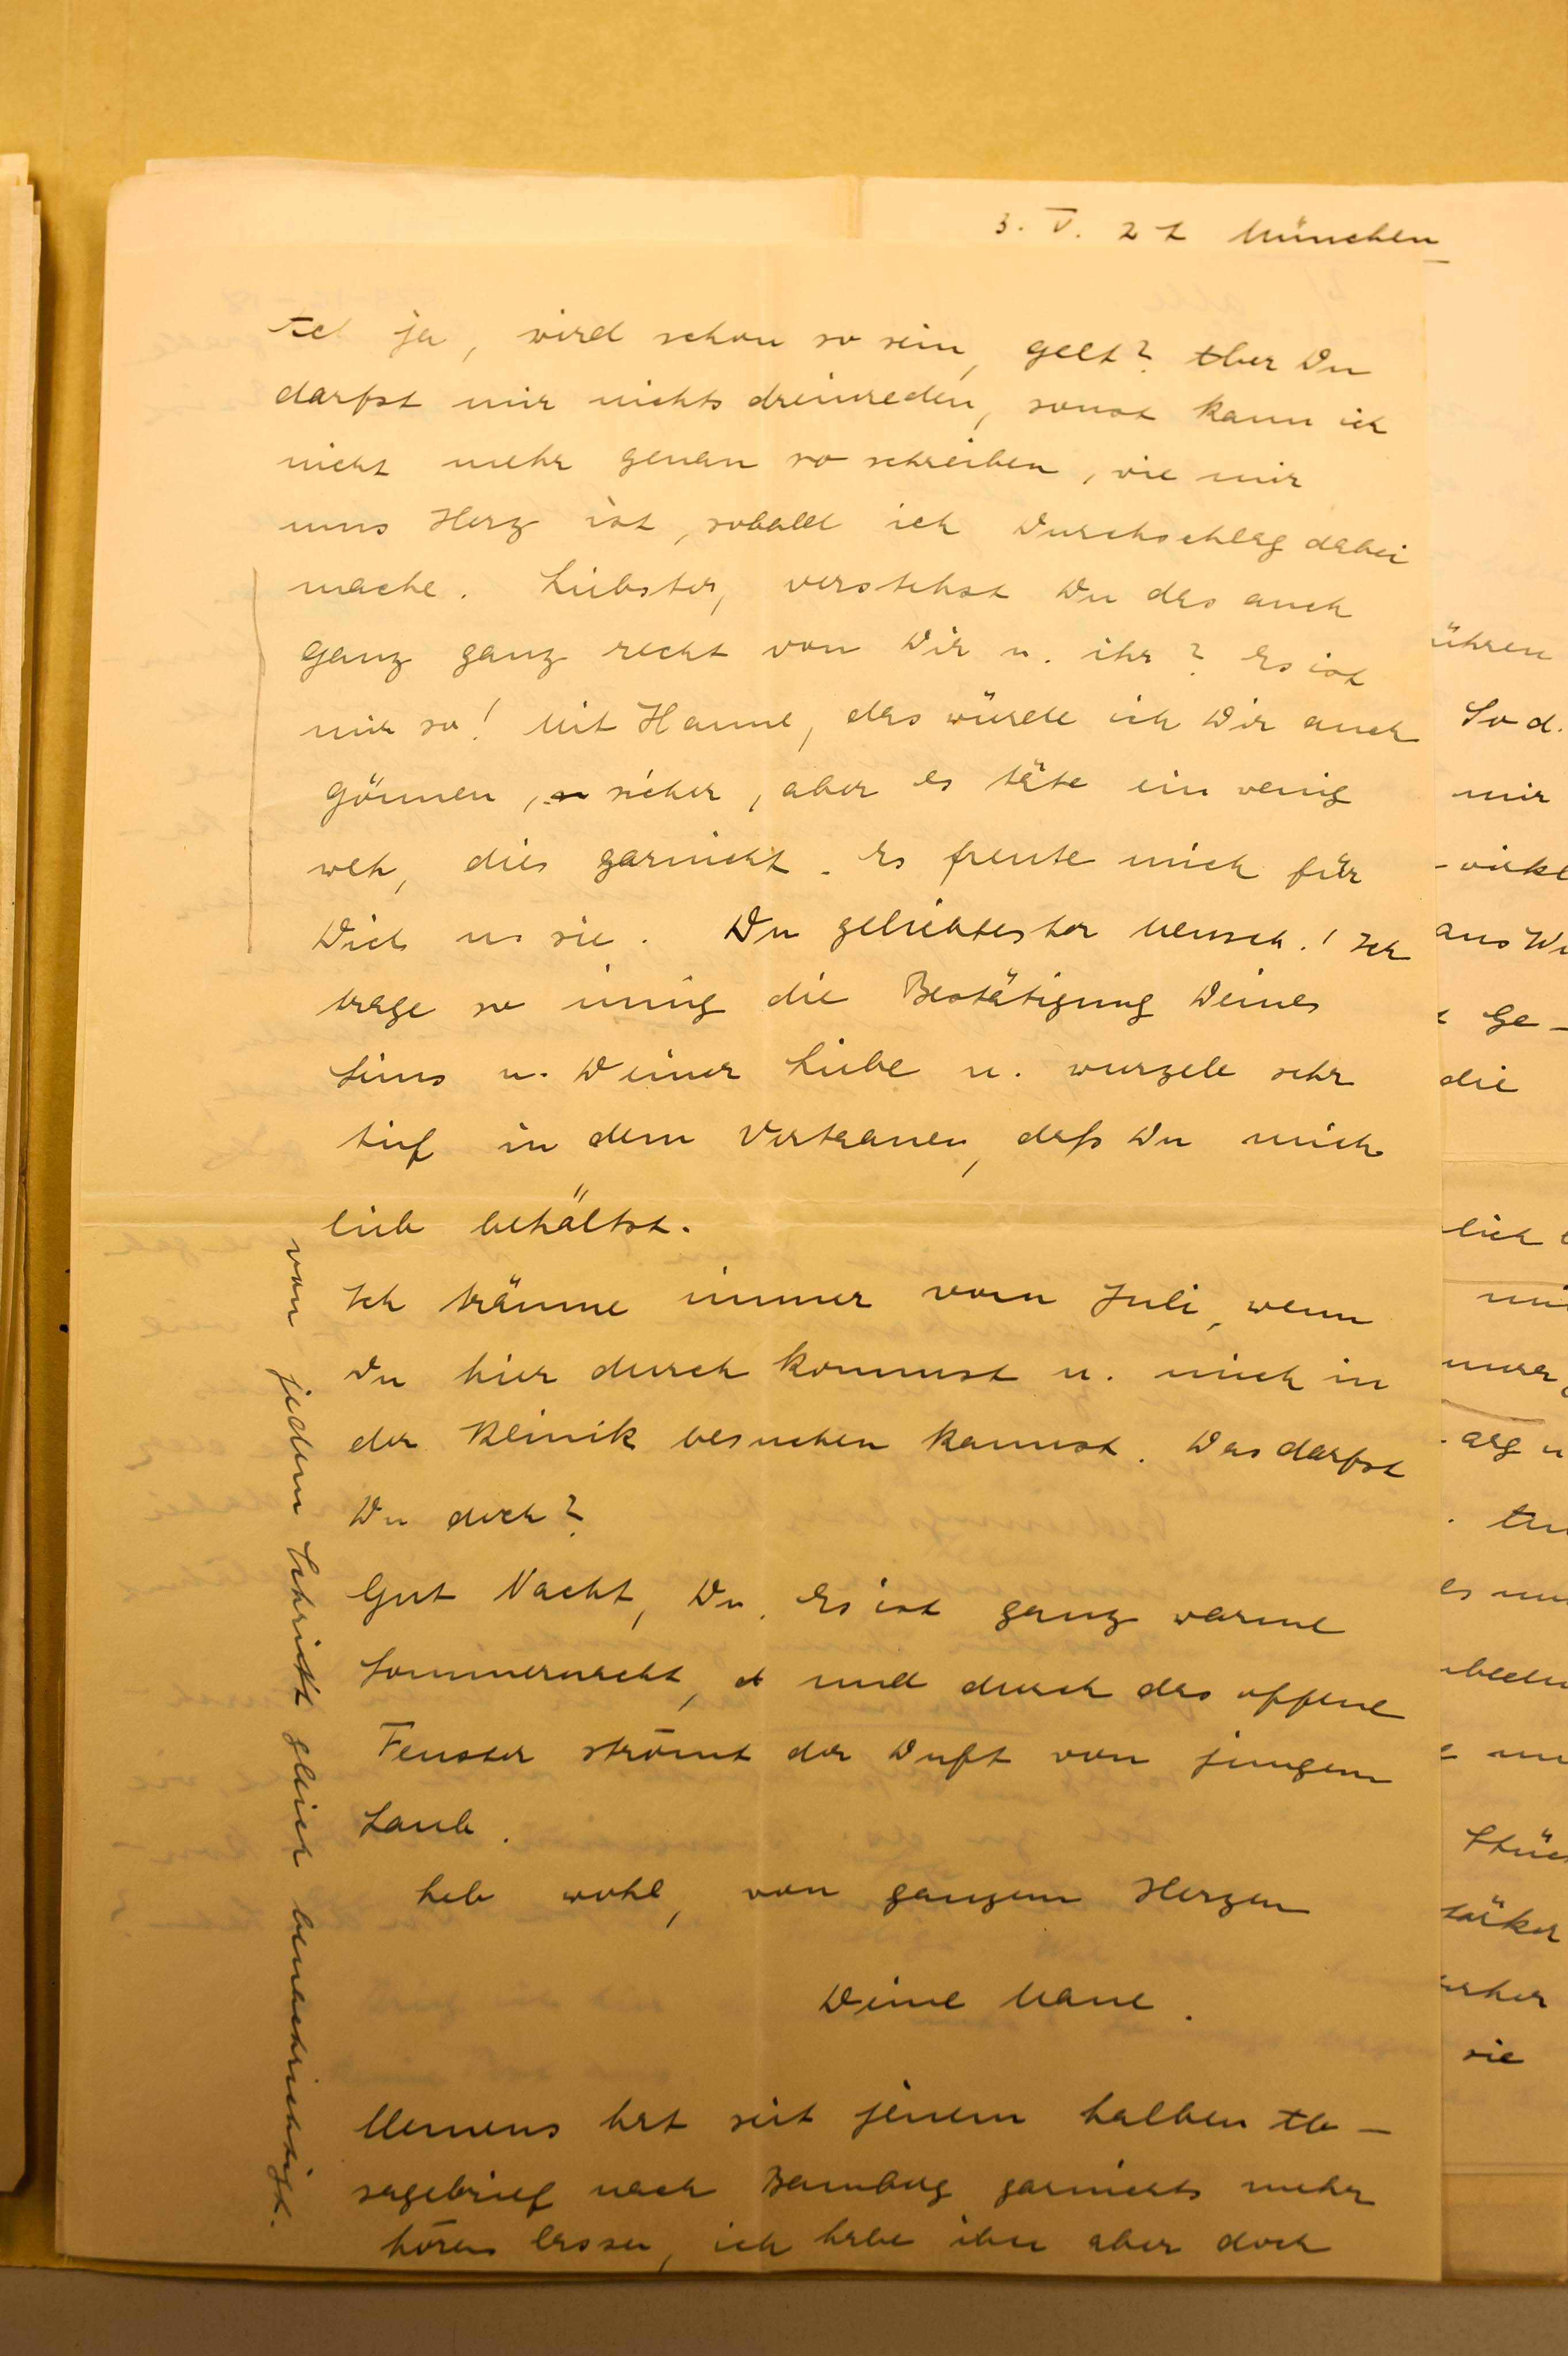 3. V. 21 München
Ach ja, wird schon so sein, gelt? Aber Du
darfst mir nichts dreinreden, sonst kann ich
nicht mehr genau so schreiben, wie mir
ums Herz ist, sobald ich Durchschlag dabei
mache. Liebster, verstehst Du das auch
ganz ganz recht von Dir u. ihr? Es ist
mir so! Mit Hanne, das würde ich Dir auch
gönnen, sicher, aber es täte ein wenig
weh, dies garnicht. Es freute mich für
Dich u. sie. Du geliebtester Mensch! Ich
trage so innig die Bestätigung Deines
Seins u. Deiner Liebe u. wurzele sehr
tief in dem Vertrauen, daß Du mich
lieb behältst.
Ich träume immer vom Juli, wenn
Du hier durch kommst u. mich in
der Klinik besuchen kannst. Das darfst
Du doch?
Gut Nacht, Du. Es ist ganz warme
Sommernacht, und durch das offene
Fenster strömt der Duft von jungem
Laub.
Leb wohl, von ganzem Herzen
Deine Mane.
Clemens hat seit jenem halben Ab-
sagebrief nach Bamberg garnichts mehr
hören lassen, ich habe ihn aber doch
von jedem Schritt gleich benachrichtigt.
ühren
So d.
mir
aus
Ge-
die
lich
arg
es
sie